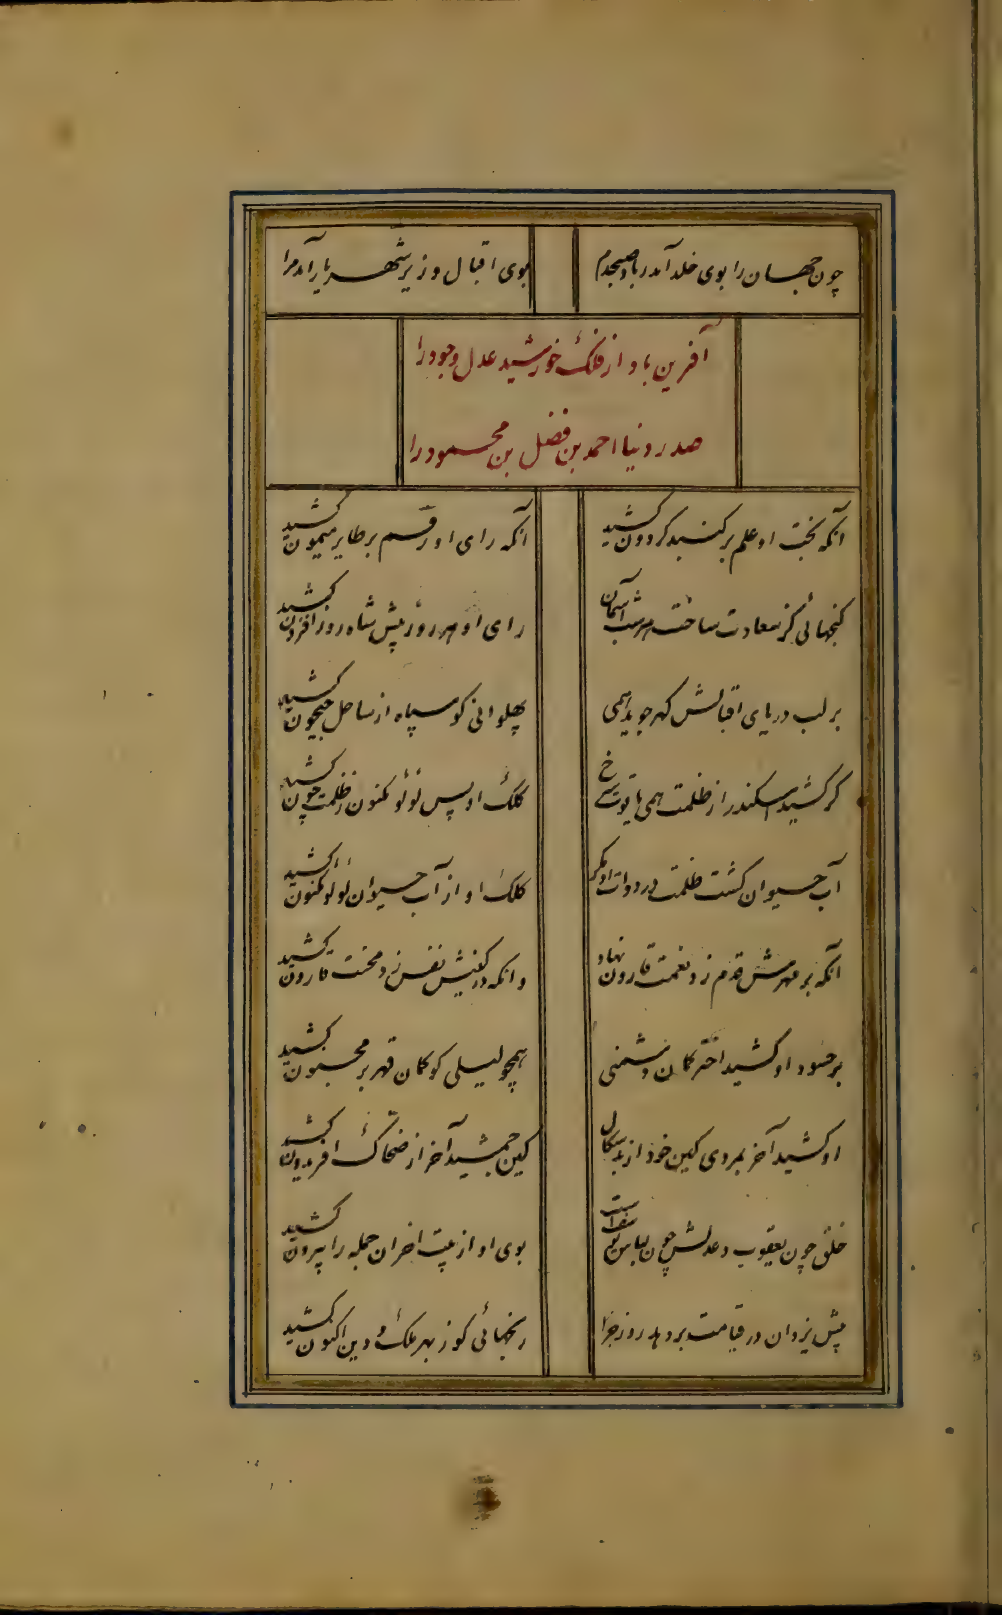 چون جهان را بوی خلد آمد ز باد صبحدم
بوی اقبال وزیر شهریار آمد مرا
آفرین باد از فلک خورشید عدل وجود را
صدر دنیا احمد بن فضل بن محمود را
آنکه بخت او علم بر گنبد گردون کشید
آنکه رای او رقم بر طایر میمون کشید
گنجهائی کز سعادت ساخت هر شب آسمان
رای او هر روز پیش شاه روز افزون کشید
بر لب دریای اقبالش گهر جوید همی
پهلوانی کو سپاه از ساحل جیحون کشید
گر کشید اسکندر از ظلمت همی یاقوت سرخ
کلک او پس لؤلؤ مکنون ز ظلمت چون کشید
آب حیوان گشت ظلمت در دوات او مگر
کلک او از آب حیوان لؤلؤ مکنون کشید
آنکه بر مهرش قدم زد نعمت قارون نهاد
وانکه در کینش نفس زد محنت قارون کشید
بر حسود او کشید اختر کمان دشمنی
همچو لیلی کو کمان قهر بر مجنون کشید
او کشید آخر بمردی کین خود از بدسکال
کین جمشید آخر از ضحاک افریدون کشید
خلق چون یعقوب و عدلش چون لباس یوسف است
بوی او از بیت احزان جمله را بیرون کشید
پیش یزدان در قیامت بر دهد روز جزا
رنجهائی کو ز بهر ملک و دین اکنون کشید